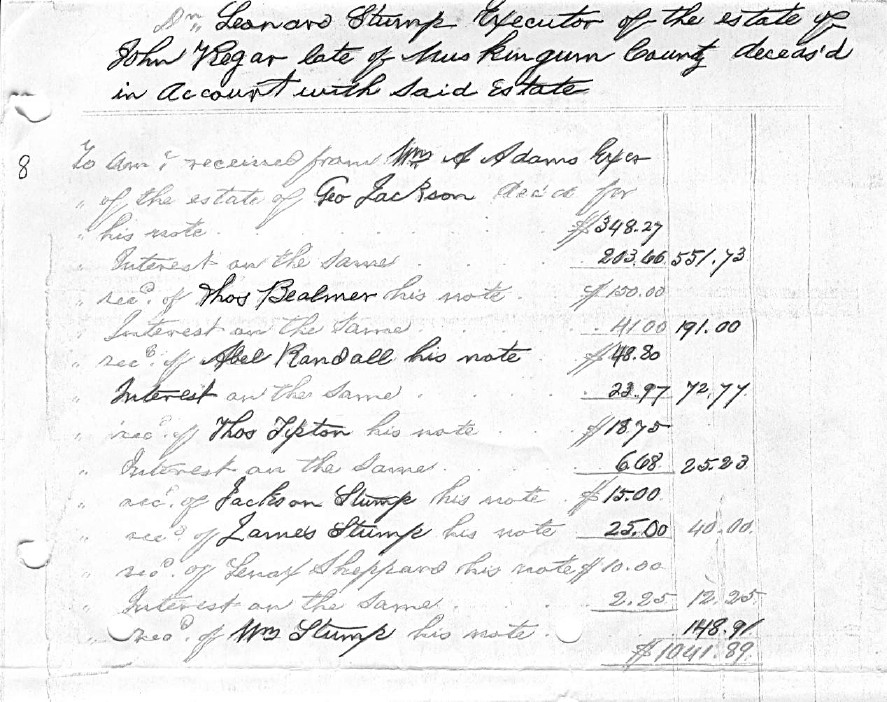 Dr. Leonard Stump Executor of the estate of
John Kegar late of Muskingum County deceas'd
in account with said Estate
8 To am't received from Wm A Adams Exer
" of the estate of Geo Jackson dec'd for
" his note $348.27
" Interest on the same 203.46 551.73
" rec'd of Thos Bealmer his note $150.00
" Interest on the same 41.00 191.00
" rec'd of Abel Randall his note $48.80
" Interest on the same 23.97 72.77
" rec'd of Thos Tipton his note $18.75
" Interest on the same 6.68 25.23
" rec'd of Jackson Stump his note $15.00
" rec'd of James Stump his note 25.00 40.00
" rec'd of Sheppard his note $10.00
" Interest on the same 2.25 12.25
" rec'd of Wm Stump his note 148.91
$1041.89